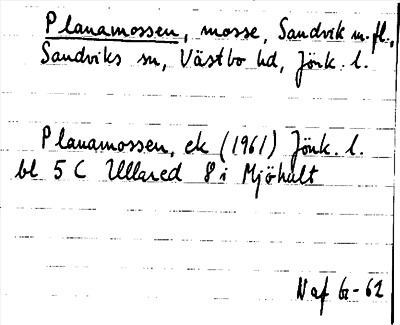 Planamossen, mosse, Sandvik m.fl.,
Sandviks sn, Västbo hd, Jönk. l.
Planamossen, ek (1961) Jönk. l.
bl 5 C Ullared 8 i Mjöhult
N af G-62